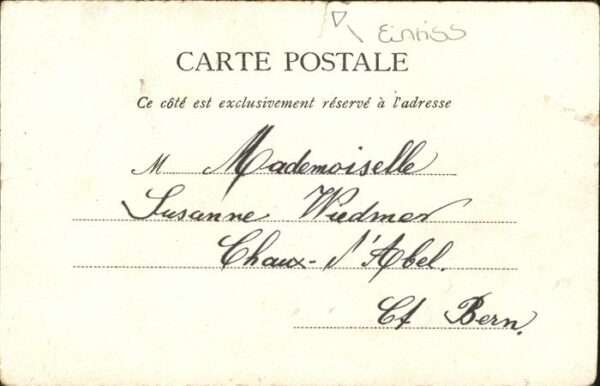 Einriss
CARTE POSTALE
Ce côté est exclusivement réservé à l'adresse
M Mademoiselle
Susanne Widmer
Chaux-d'Abel.
Ct Bern.